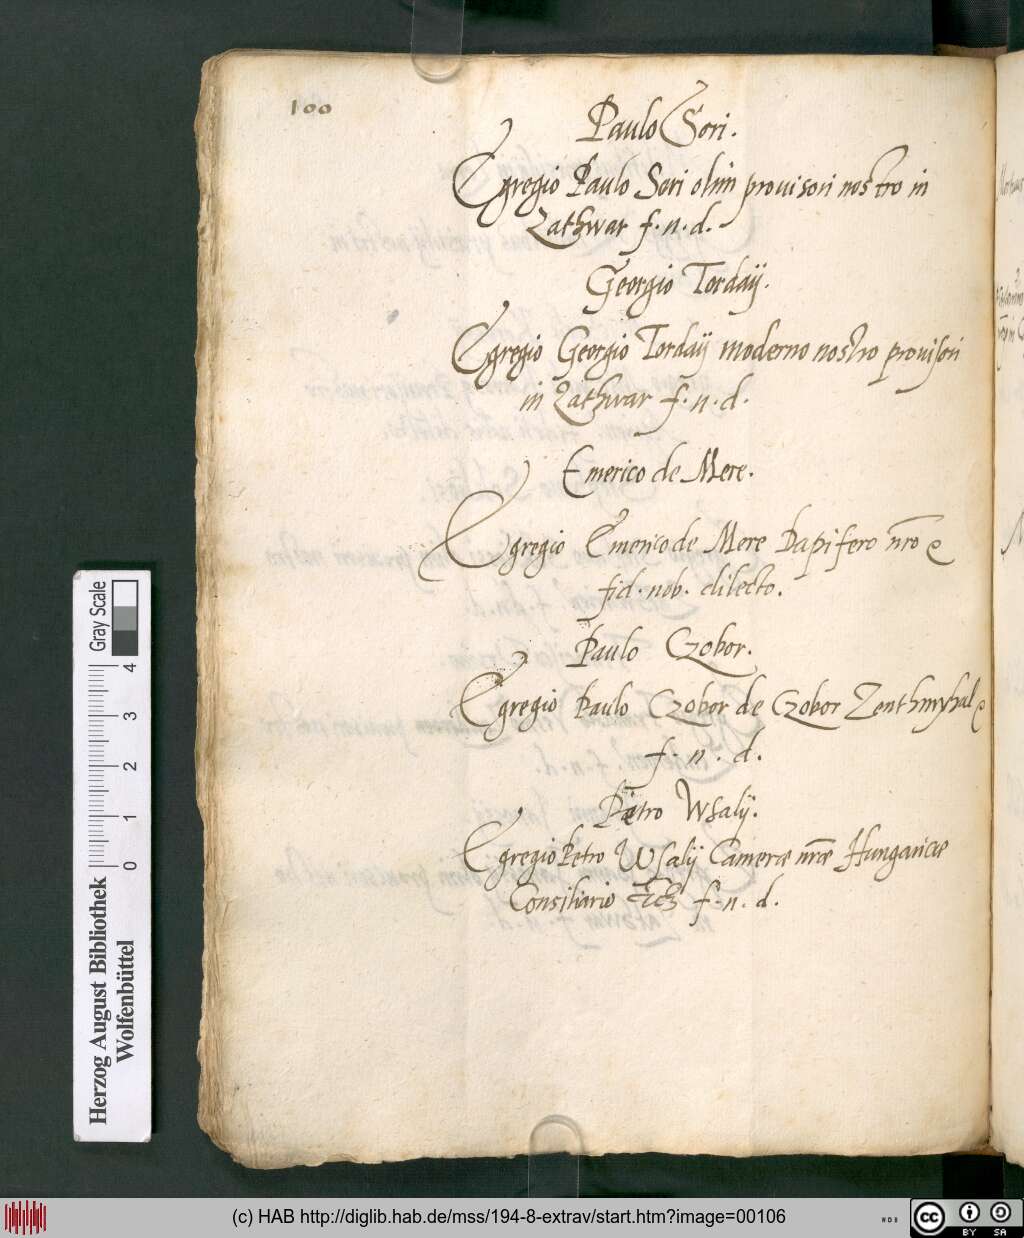 100
Paulo Seri.
Egregio Paulo Seri olim prouisori nostro in
Zathwar f. n. d.
Georgio Tordaÿ.
Egregio Georgio Tordaÿ moderno nostro prouisori
in Zathwar f. n. d.
Emerico de Mere.
Egregio Emerico de Mere Dapifero nro
fid. nob. dilecto.
Paulo Czobor.
Egregio Paulo Czobor de Czobor Zenthmyhal
f. n. d.
Petro Wsalÿ.
Egregio Petro Wsalÿ Cameræ nræ Hungaricæ
Consiliario &c f. n. d.
Gray Scale
0 1 2 3 4
Herzog August Bibliothek
Wolfenbüttel
(c) HAB http://diglib.hab.de/mss/194-8-extrav/start.htm?image=00106
WDB
cc BY SA